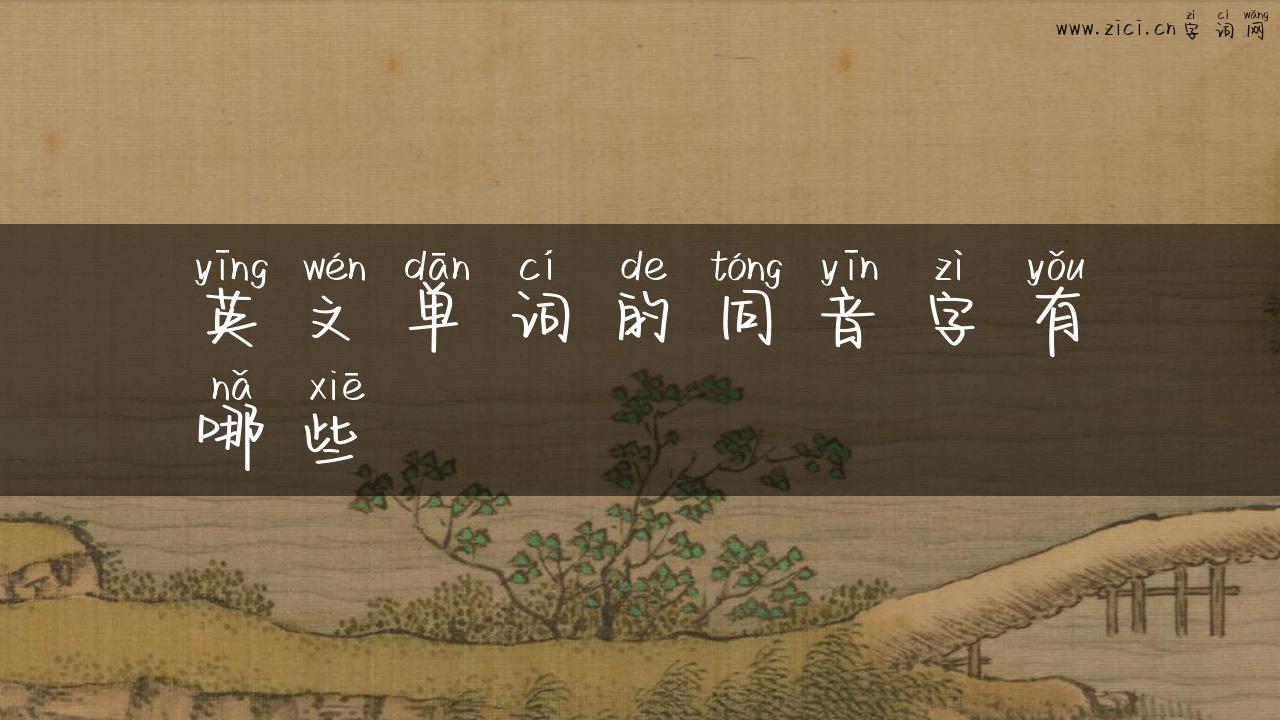 zì cí wǎng
www.zici.cn 字词网
yīng wén dān cí de tóng yīn zì yǒu
英文单词的同音字有
nǎ xiē
哪些